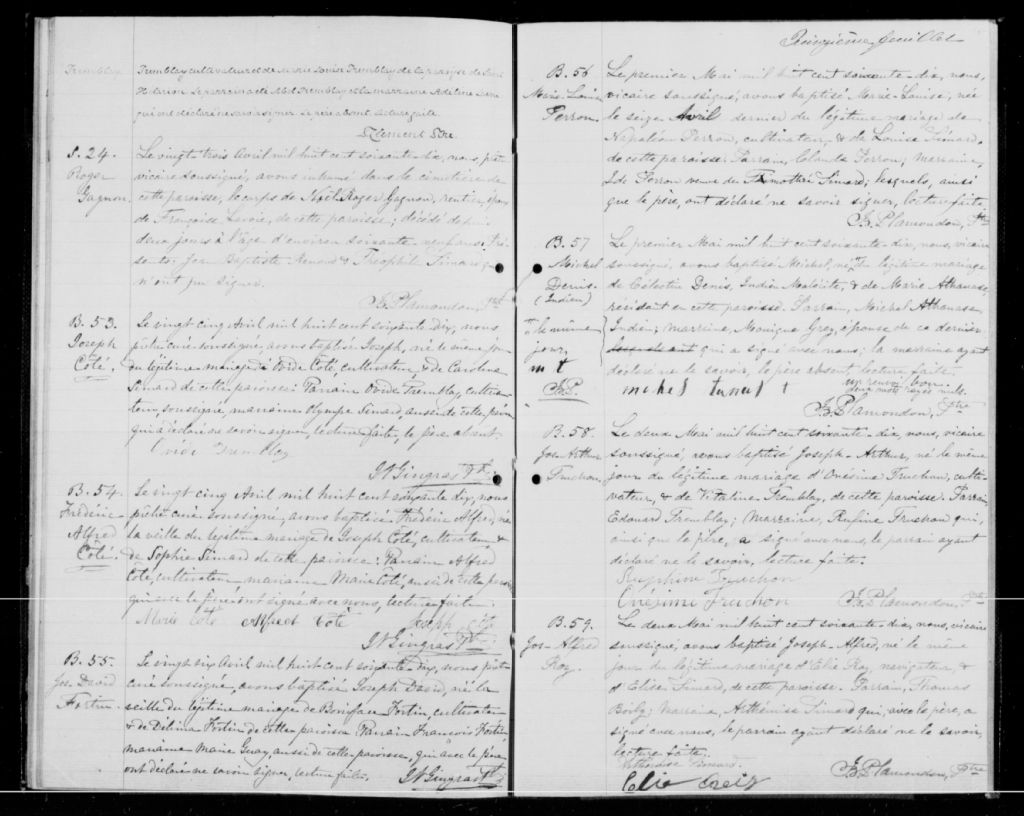 Tremblay
Tremblay cultivateur et de Marie Louise Tremblay de la paroisse de Saint
Hilarion. Le parrain a été Abel Tremblay et la marraine Adeline
qui ont déclaré ne savoir signer. Le père absent. Lecture faite.
Clément Ptre.
S. 24.
Roger
Gagnon.
Le vingt trois Avril mil huit cent soixante-dix, nous, prêtre
vicaire soussigné, avons inhumé dans le cimetière de
cette paroisse, le corps de Roger Gagnon, rentier, époux
de Françoise Lavoie, de cette paroisse, décédé depuis
deux jours à l'âge d'environ soixante-neuf ans. Pré-
sents: Jean Baptiste & Théophile Simard qui
n'ont pu signer.
J.B. Plamondon, Ptre
B. 53.
Joseph
Côté.
Le vingt cinq Avril mil huit cent soixante dix, nous
prêtre curé soussigné, avons baptisé Joseph, né le même jour
du légitime mariage d'Ovide Côté, cultivateur, & de Caroline
Simard de cette paroisse: Parrain Ovide Tremblay, cultiva-
teur, soussigné, marraine Olympe Simard, aussi de cette paroisse
qui a déclaré ne savoir signer, lecture faite, le père absent.
Ovide Tremblay
Gingras Ptre.
B. 54.
Frédéric
Alfred
Côté.
Le vingt cinq Avril mil huit cent soixante dix, nous
prêtre curé soussigné, avons baptisé Frédéric Alfred, né
la veille du légitime mariage de Joseph Côté, cultivateur &
de Sophie Simard de cette paroisse: Parrain Alfred
Côté, cultivateur marraine Marie Côté, aussi de cette paroisse
qui avec le père ont signé avec nous, lecture faite.
Marie Coté Alfred Coté Joseph Côté
Gingras Ptre.
B. 55.
Jos. David
Fortin.
Le vingt six Avril mil huit cent soixante dix, nous prêtre
curé soussigné, avons baptisé Joseph David, né la
veille du légitime mariage de Boniface Fortin, cultivateur
& de Délima Fortin de cette paroisse. Parrain François Fortin
marraine Marie Guay, aussi de cette paroisse, qui avec le père
ont déclaré ne savoir signer, lecture faite.
Gingras Ptre
Quinzième feuillet
B. 56
Marie-Louise
Perron.
Le premier Mai mil huit cent soixante-dix, nous,
vicaire soussigné, avons baptisé Marie-Louise, née
le seize Avril dernier du légitime mariage de
Napoléon Perron, cultivateur, & de Louise Simard,
de cette paroisse. Parrain, Perron; marraine,
Ide Perron veuve de Timothée Simard; lesquels, ainsi
que le père, ont déclaré ne savoir signer, lecture faite.
J.B. Plamondon, Ptre
B. 57
Michel
Denis.
(Indien)
Le premier Mai mil huit cent soixante-dix, nous, vicaire
soussigné, avons baptisé Michel, né, du légitime mariage
de Célestin Denis, Indien Malécite, & de Marie Athanase,
résidant en cette paroisse. Parrain, Michel Athanase
le même
jour,
m t
J.B.P.
Indien; Marraine, Monique Grey, épouse de ce dernier
qui a signé avec nous; la marraine ayant
déclaré ne le savoir, le père absent, lecture faite.
un renvoi bon.
deux mots rayés nuls.
michel
J.B. Plamondon, Ptre
B. 58.
Jos-Arthur
Truchon.
Le deux Mai mil huit cent soixante-dix, nous, vicaire
soussigné, avons baptisé Joseph-Arthur, né le même
jour du légitime mariage d'Onésime Truchon, culti-
vateur, & de Vitaline Tremblay, de cette paroisse. Parrain,
Edouard Tremblay; Marraine, Rufine Truchon qui,
ainsi que le père, a signé avec nous, le parrain ayant
déclaré ne le savoir, lecture faite.
Ruphine Truchon
Onésime Truchon
J.B. Plamondon, Ptre
B. 59.
Jos-Alfred
Roy.
Le deux Mai mil huit cent soixante-dix, nous, vicaire
soussigné, avons baptisé Joseph-Alfred, né le même
jour du légitime mariage d'Elie Roy, navigateur, &
d'Elise Simard, de cette paroisse. Parrain, Thomas
Boily; Marraine, Arthémise Simard qui, avec le père, a
signé avec nous, le parrain ayant déclaré ne le savoir,
lecture faite.
Arthémise Simard.
J.B. Plamondon, Ptre